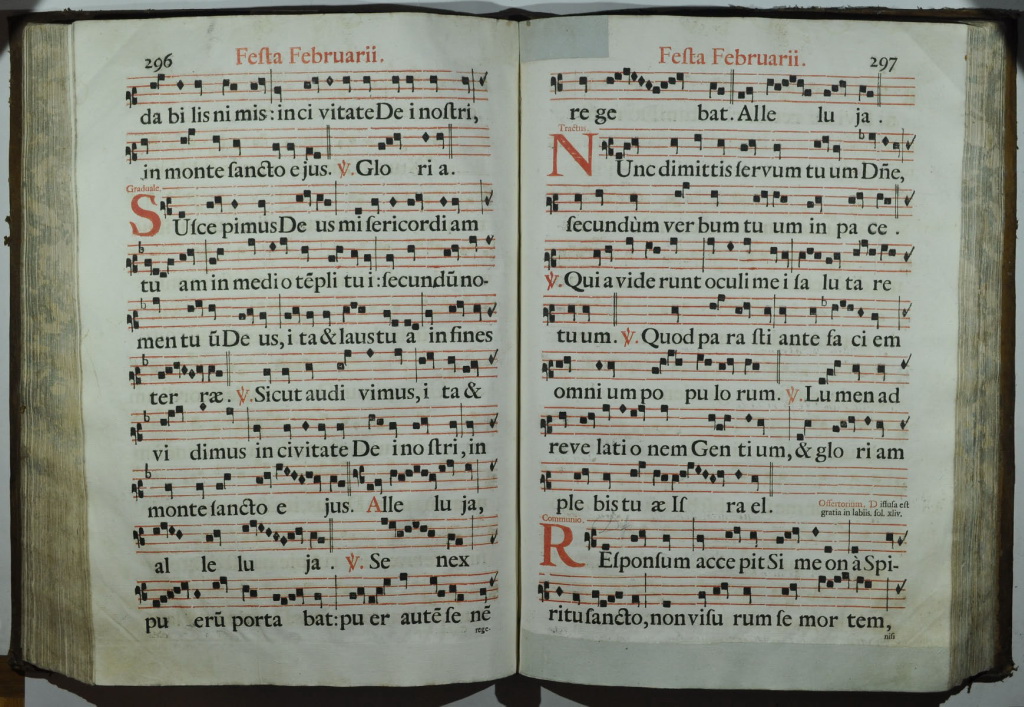 296
Festa Februarii.
da bi lis ni mis : in ci vitate De i nostri,
in monte sancto e jus. ℣. Glo ri a.
Graduale.
SUsce pimus De us mi sericordi am
tu am in medi o tēpli tu i : secundū no-
men tu ū De us, i ta & laus tu a in fines
ter ræ. ℣. Sicut audi vimus, i ta &
vi dimus in civitate De i no stri, in
monte sancto e jus. Alle lu ja,
al le lu ja. ℣. Se nex
pu erū porta bat : pu er autē se nē
rege-
Festa Februarii.
297
re ge bat. Alle lu ja .
Tractus.
NUnc dimittis servum tu um Dñe,
secundùm ver bum tu um in pa ce .
℣. Qui a vide runt oculi me i sa lu ta re
tu um. ℣. Quod pa ra sti ante fa ci em
omni um po pu lo rum. ℣. Lu men ad
reve lati o nem Gen ti um, & glo ri am
ple bis tu æ Is ra el.
Offertorium. Diffusa est
gratia in labiis. fol. xliv.
Communio.
REsponsum acce pit Si me on à Spi-
ritu sancto, non visu rum se mor tem,
nisi